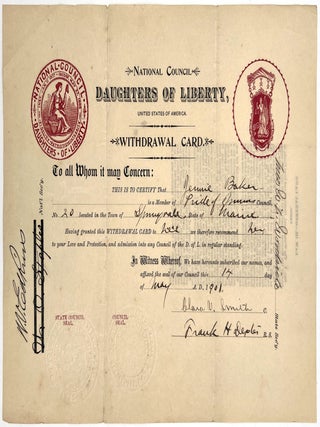 NATIONAL COUNCIL
DAUGHTERS OF LIBERTY
NATIONAL COUNCIL
DAUGHTERS OF LIBERTY,
UNITED STATES OF AMERICA.
WITHDRAWAL CARD.
To all Whom it may Concern:
THIS IS TO CERTIFY THAT Jennie Baker
is a Member of Pride of Council,
No. 20 located in the Town of State of Maine
Having granted this WITHDRAWAL CARD to we therefore recommend her
to your Love and Protection, and admission into any Council of the D. of L. in regular standing.
In Witness Whereof, We have hereunto subscribed our names, and
affixed the seal of our Council this 17 day
of May A.D. 1901.
Clara V. Smith C
Frank H R.S.
STATE COUNCIL
SEAL.
COUNCIL
SEAL.
Nat'l Sec'y.
State Sec'y.